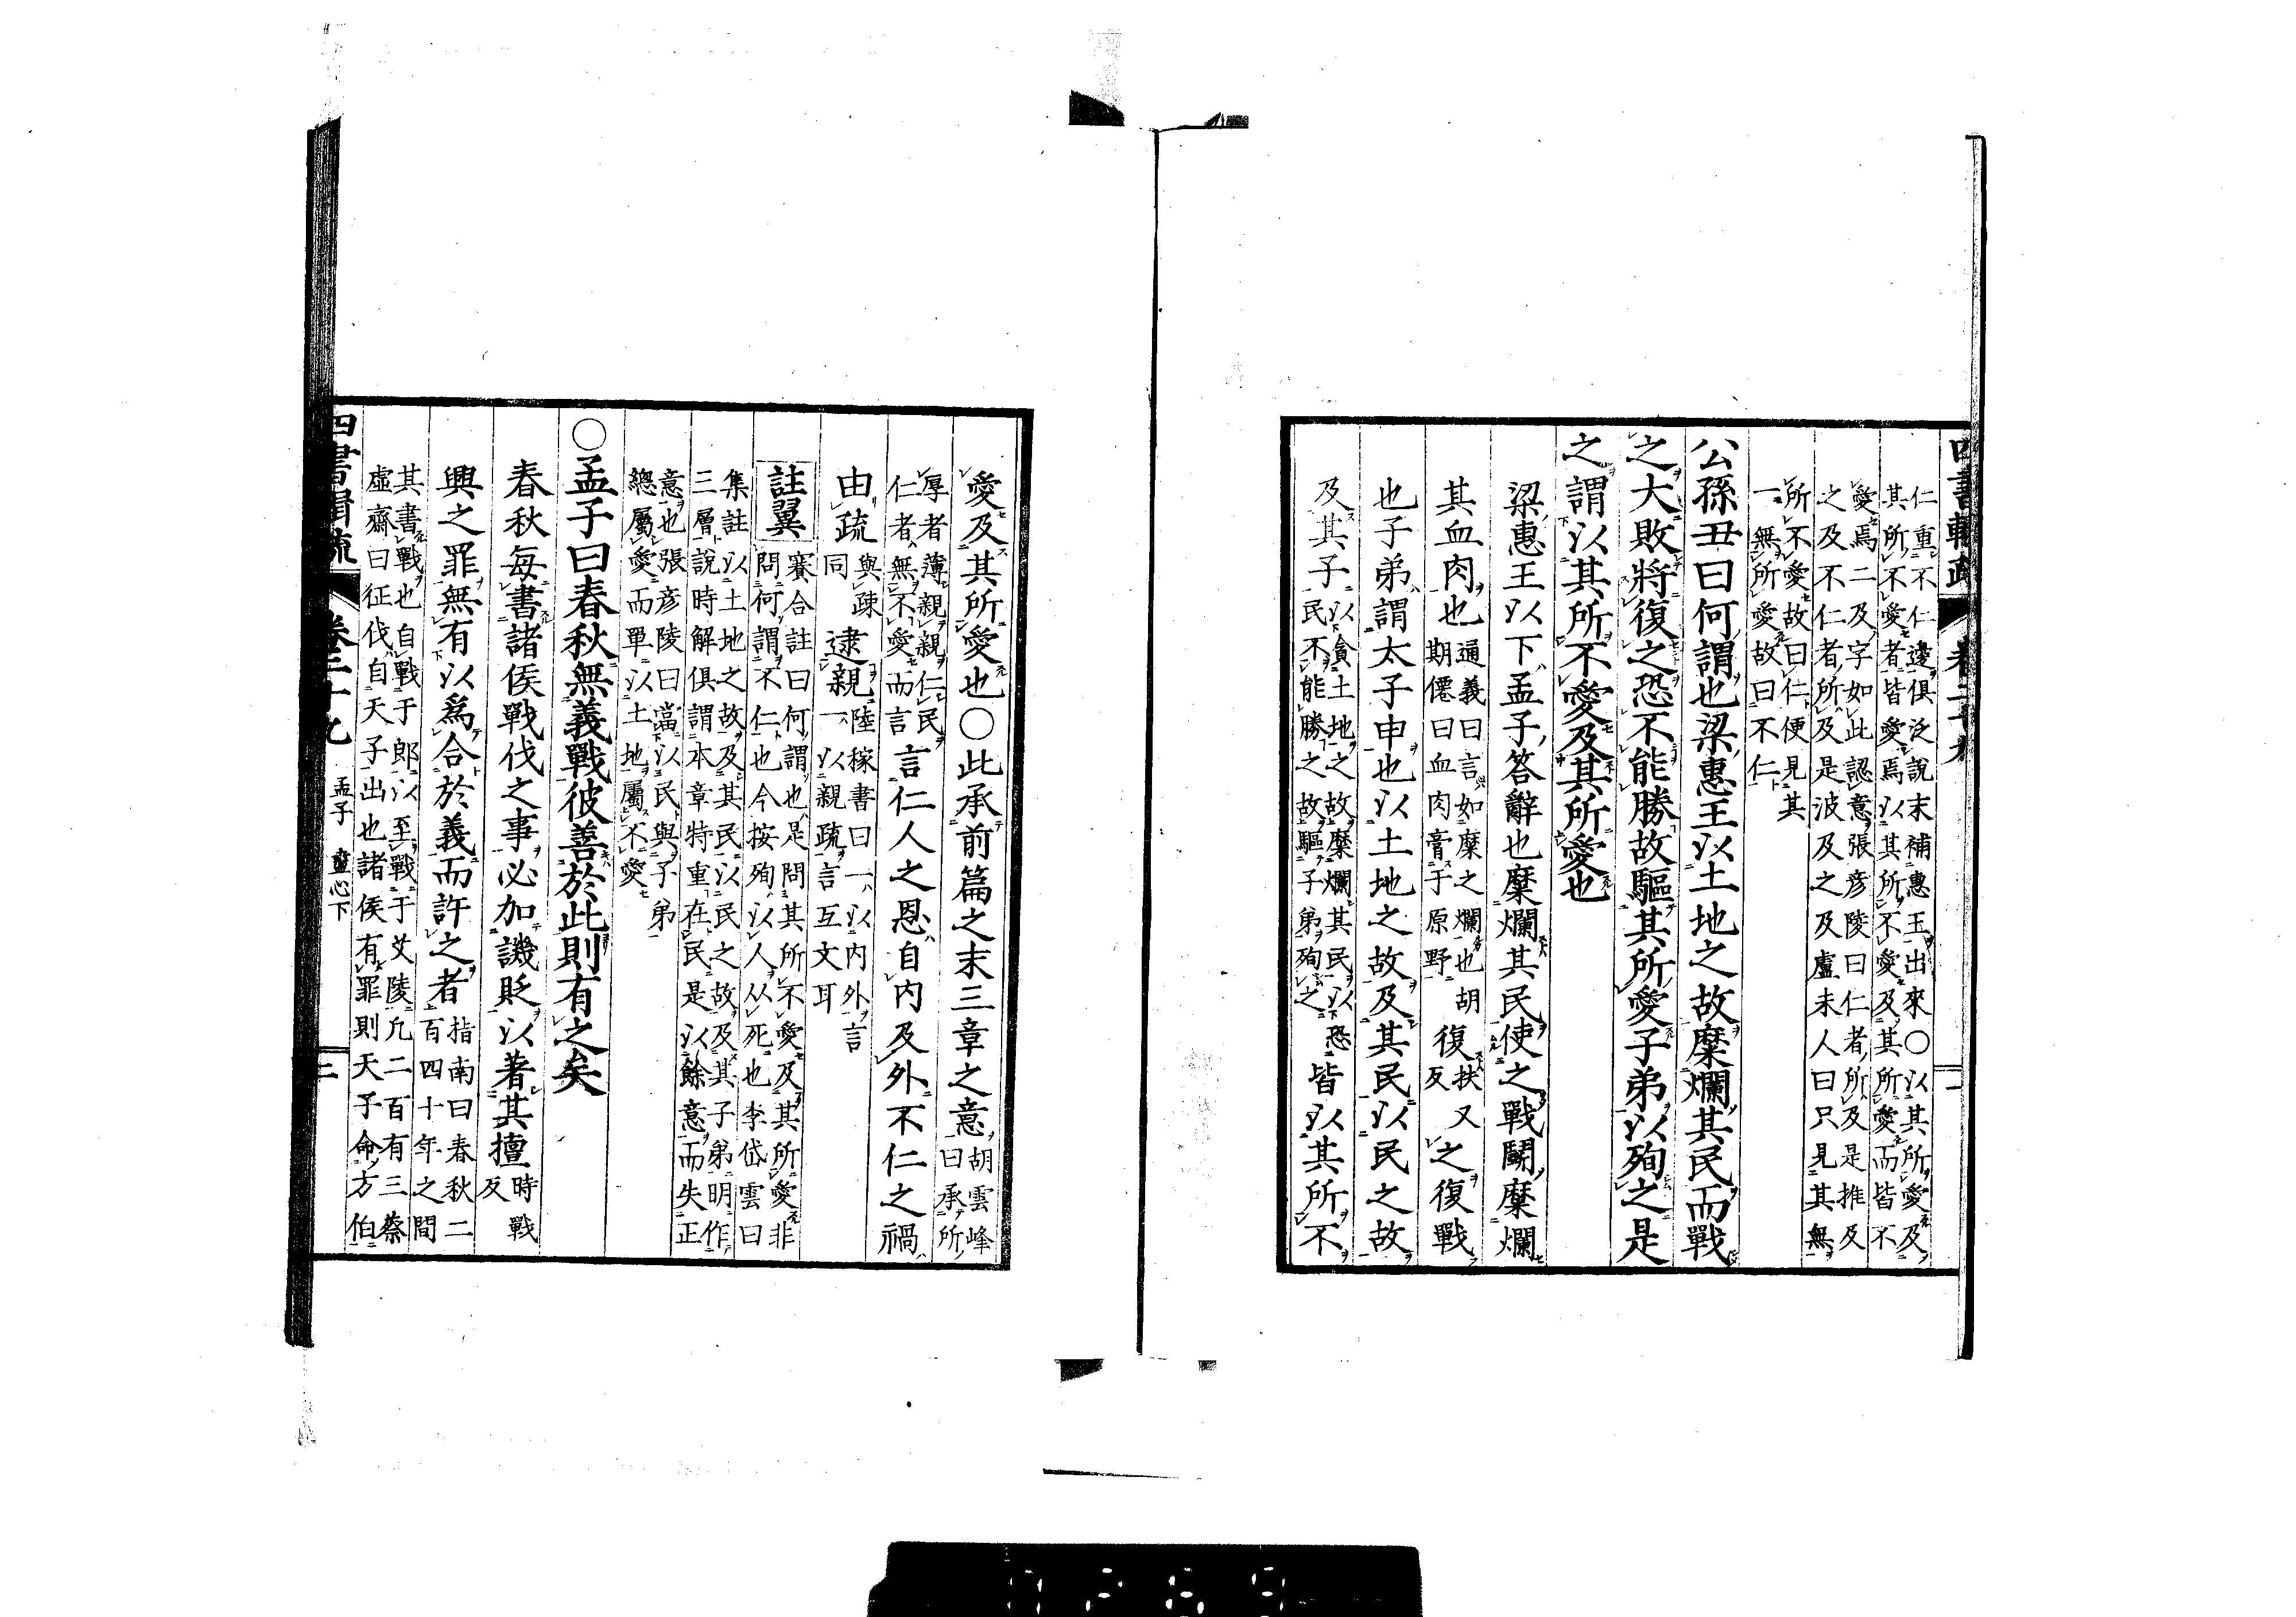 四書輯疏 卷二十九 一
仁重不仁邊俱泛說末補惠王出來○以其所愛及
其所不愛者皆愛焉以其所不愛及其所愛而皆不
愛焉二及字如此認意張彥陵曰仁者所及是推及
之及不仁者所及是波及之及盧未人曰只見其無
所不愛故曰仁便見其
一無所愛故曰不仁
公孫丑曰何謂也梁惠王以土地之故糜爛其民而戰
之大敗將復之恐不能勝故驅其所愛子弟以殉之是
之謂以其所不愛及其所愛也
梁惠王以下孟子答辭也糜爛其民使之戰鬭糜爛
其血肉也通義曰言如糜之爛也胡期僊曰血肉膏于原野復扶又反之復戰
也子弟謂太子申也以土地之故及其民以民之故
及其子以貪土地之故糜爛其民以恐民不能勝之故驅子弟殉之皆以其所不
愛及其所愛也○此承前篇之末三章之意胡雲峰曰承所
厚者薄親親仁民仁者無不愛而言言仁人之恩自內及外不仁之禍
由疏與疎同逮親陸稼書曰一以內外言一以親疏言互文耳
註翼賽合註曰何謂也是問其所不愛及其所愛非
問何謂不仁也今按殉以人从死也李岱雲曰
集註以土地之故及其民以民之故及其子弟明作
三層說時解俱謂本章特重在民是以餘意而失正
意也張彥陵曰當以民與子弟
總屬愛而單以土地屬不愛
○孟子曰春秋無義戰彼善於此則有之矣
春秋每書諸侯戰伐之事必加譏貶以著其擅時戰反
興之罪無有以爲合於義而許之者指南曰春秋二百四十年之間
其書戰也自戰于郎以至戰于艾陵凡二百有三蔡
虛齋曰征伐自天子出也諸侯有罪則天子命方伯
四書輯疏 卷二十九 孟子 盡心下 二